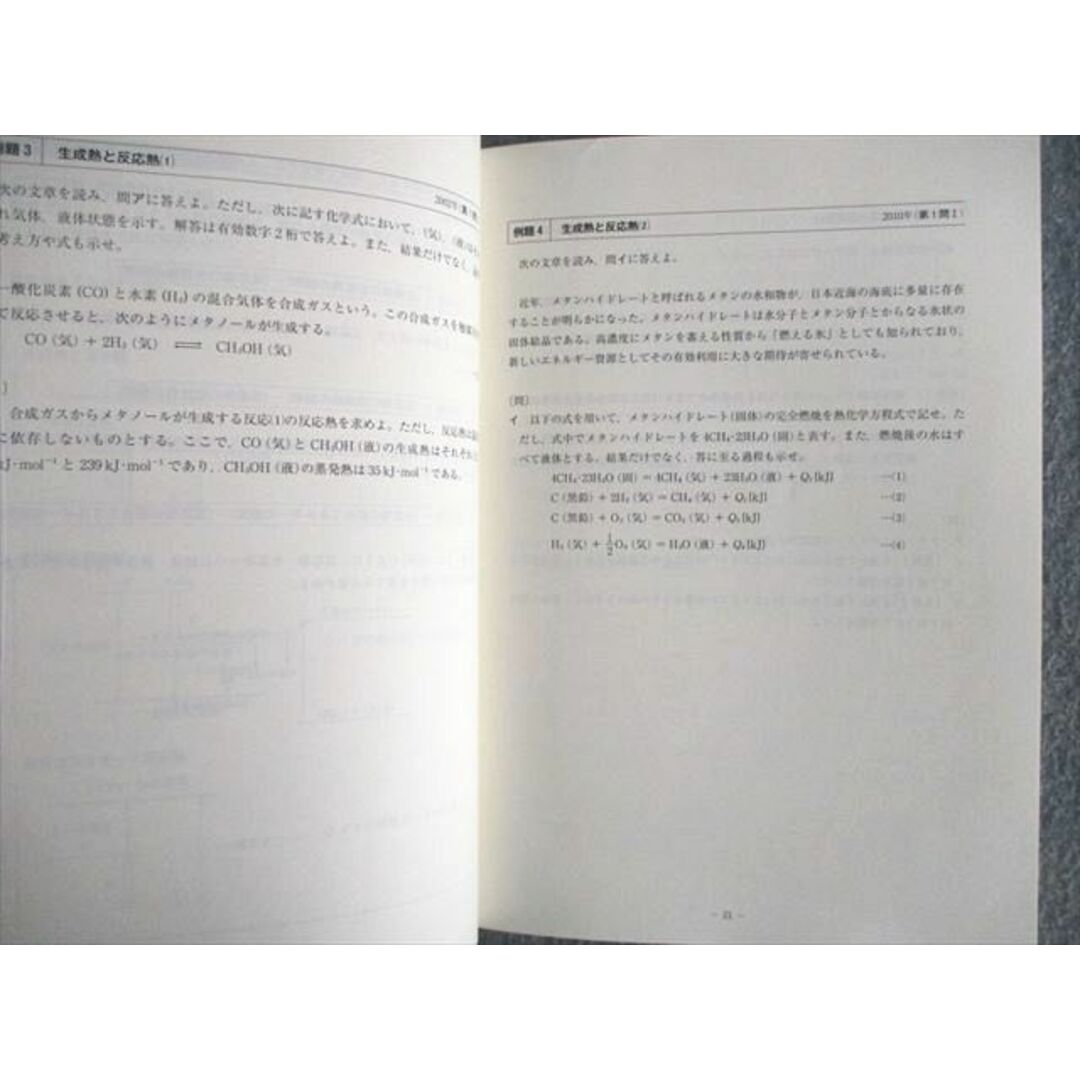 例題 3 生成熱と反応熱(1)
次の文章を読み、問アに答えよ。ただし、次に記す化学式において、(気)、(液)
れ気体、液体状態を示す。解答は有効数字2桁で答えよ。また、結果だけでなく、
考え方や式も示せ。
一酸化炭素 (CO) と水素 (H₂) の混合気体を合成ガスという。この合成ガスを
で反応させると、次のようにメタノールが生成する。
CO (気) + 2H₂ (気) ⇌ CH₃OH (気)
合成ガスからメタノールが生成する反応(1)の反応熱を求めよ。ただし、反応熱は
に依存しないものとする。ここで、CO (気) と CH₃OH (液) の生成熱はそれぞれ
kJ·mol⁻¹ と 239 kJ·mol⁻¹ であり、CH₃OH (液) の蒸発熱は 35 kJ·mol⁻¹ である。
例題 4 生成熱と反応熱(2) 2010年(第1問I)
次の文章を読み、問イに答えよ。
近年、メタンハイドレートと呼ばれるメタンの水和物が、日本近海の海底に多量に存在
することが明らかになった。メタンハイドレートは水分子とメタン分子とからなる氷状の
固体結晶である。高濃度にメタンを蓄える性質から「燃える氷」としても知られており、
新しいエネルギー資源としてその有効利用に大きな期待が寄せられている。
〔問〕
イ 以下の式を用いて、メタンハイドレート(固体)の完全燃焼を熱化学方程式で記せ。た
だし、式中でメタンハイドレートを 4CH₄·23H₂O (固) と表す。また、燃焼後の水はす
べて液体とする。結果だけでなく、答に至る過程も示せ。
4CH₄·23H₂O (固) = 4CH₄ (気) + 23H₂O (液) + Q₁[kJ] …(1)
C (黒鉛) + 2H₂ (気) = CH₄ (気) + Q₂[kJ] …(2)
C (黒鉛) + O₂ (気) = CO₂ (気) + Q₃[kJ] …(3)
H₂ (気) + 1/2 O₂ (気) = H₂O (液) + Q₄[kJ] …(4)
- 21 -